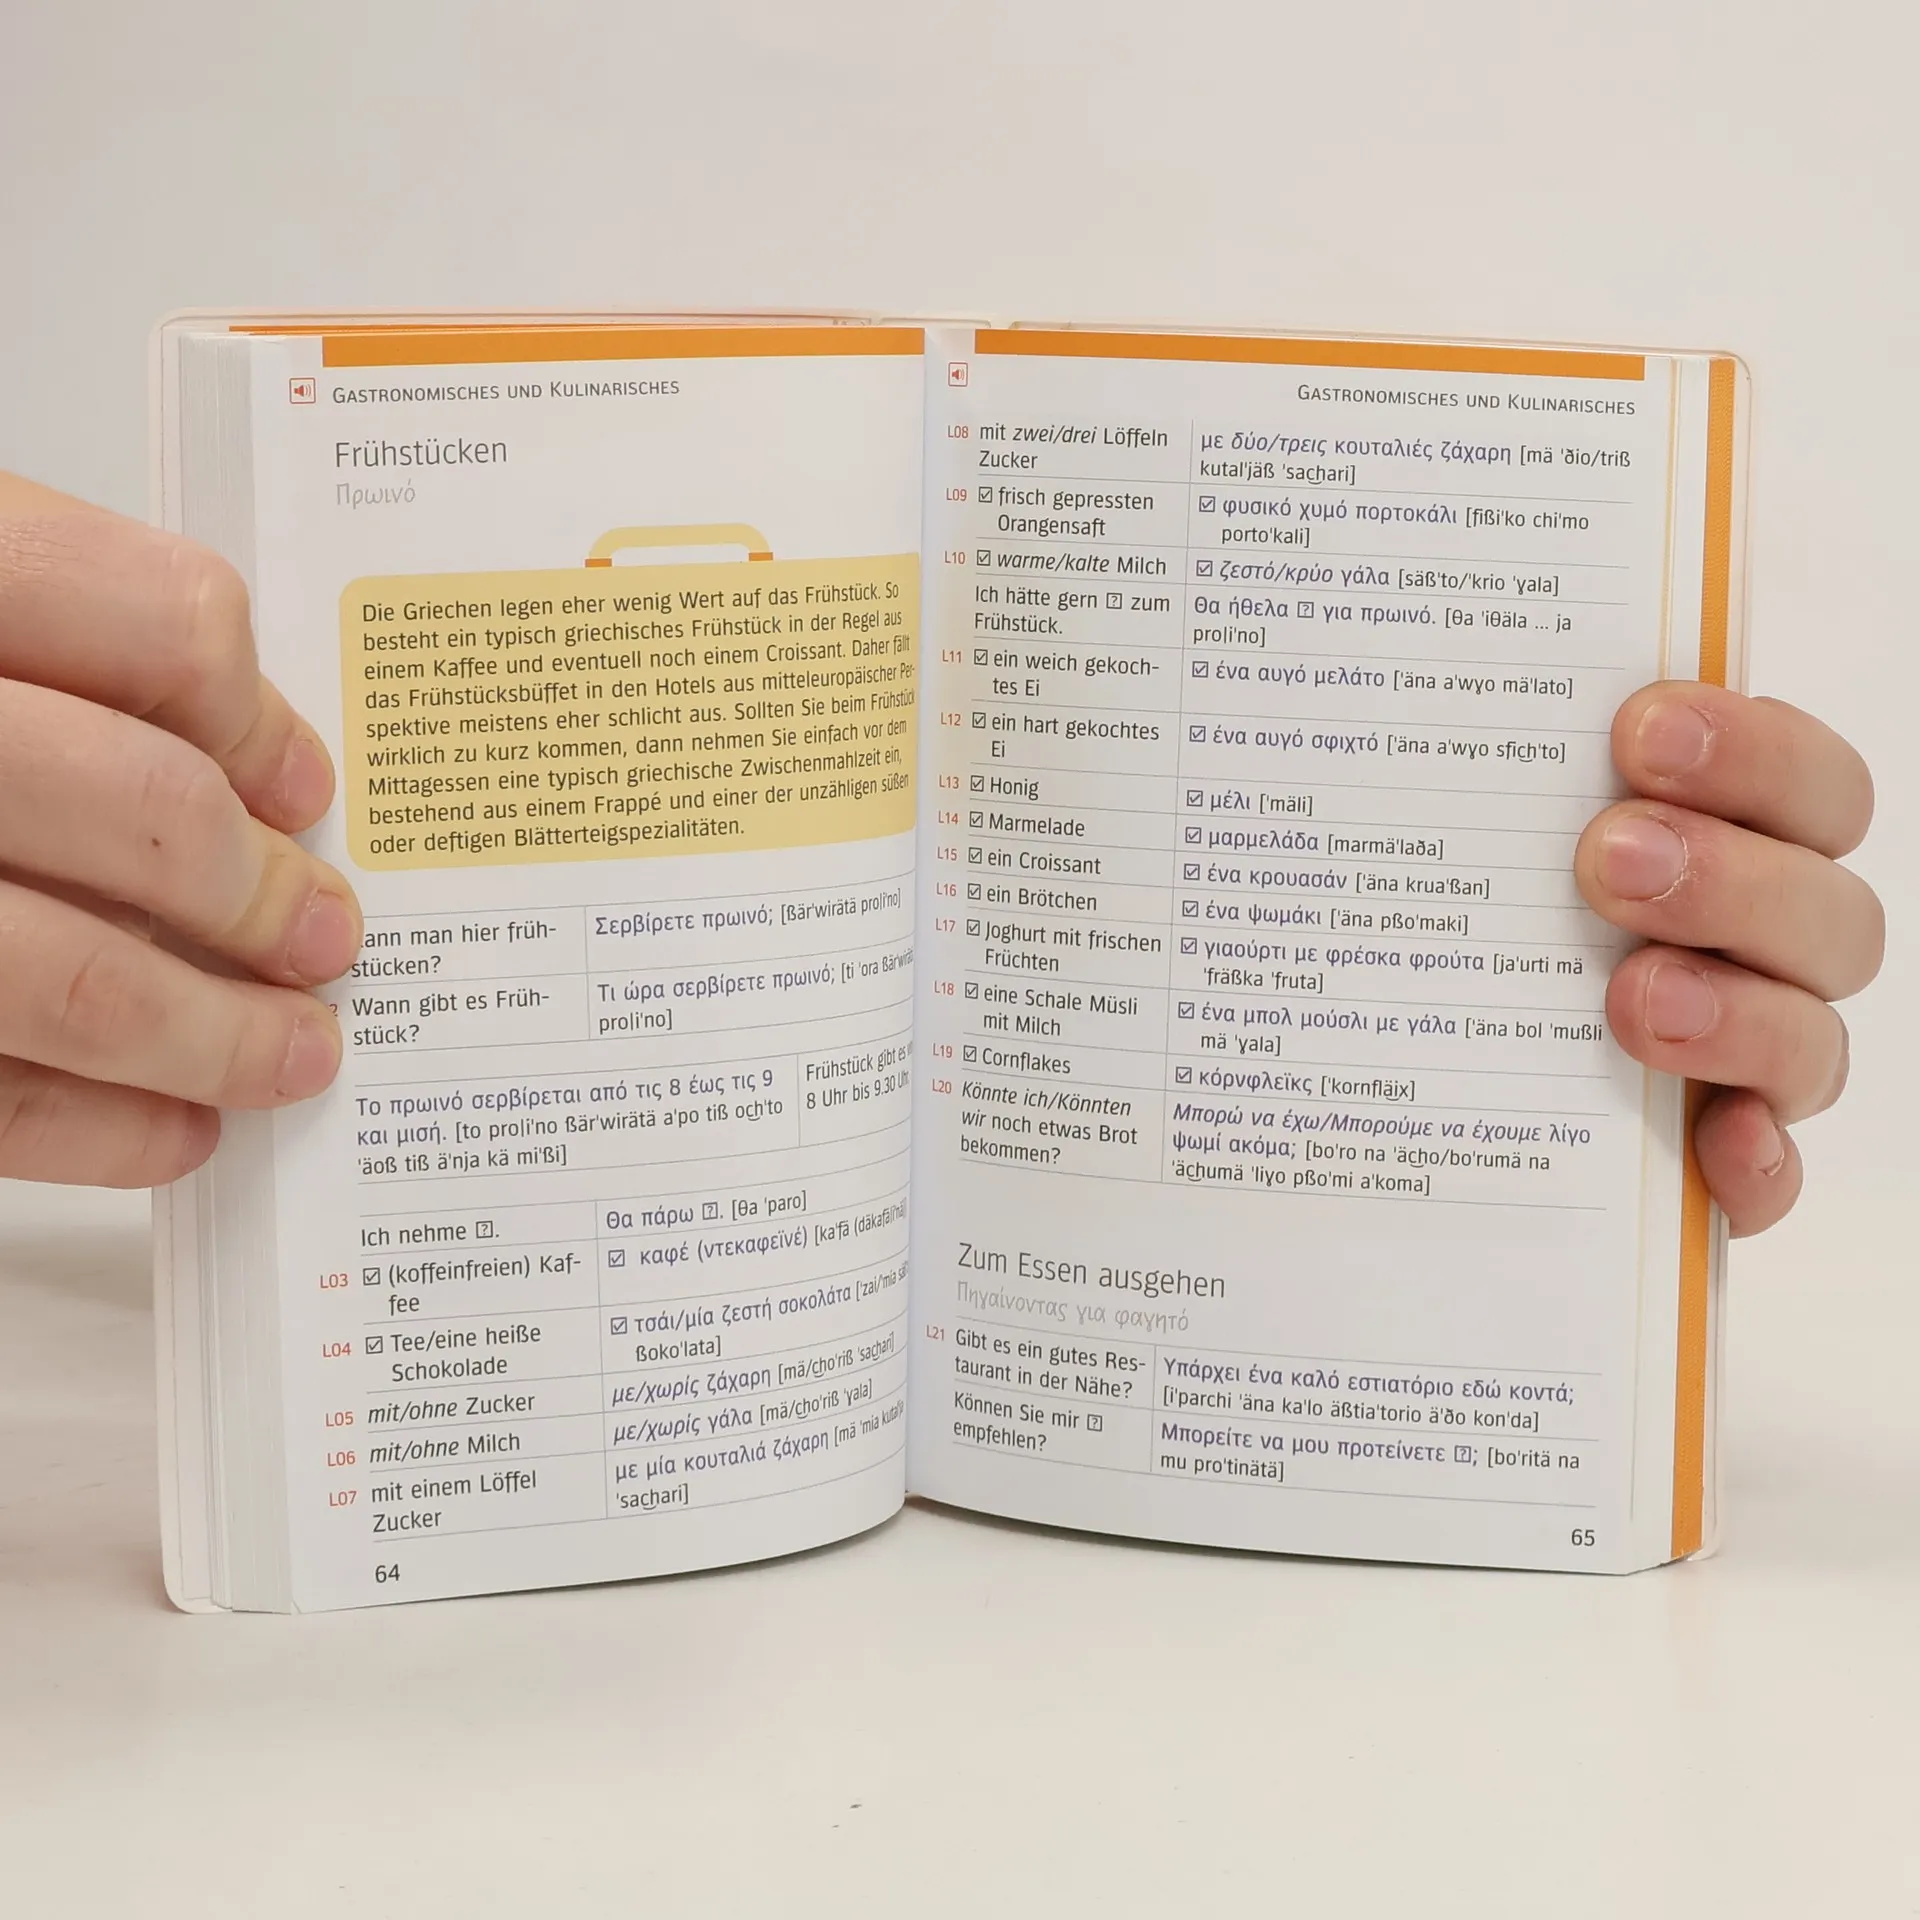 GASTRONOMISCHES UND KULINARISCHES
Frühstücken
Πρωινό
Die Griechen legen eher wenig Wert auf das Frühstück. So
besteht ein typisch griechisches Frühstück in der Regel aus
einem Kaffee und eventuell noch einem Croissant. Daher fällt
das Frühstücksbüffet in den Hotels aus mitteleuropäischer Per-
spektive meistens eher schlicht aus. Sollten Sie beim Frühstück
wirklich zu kurz kommen, dann nehmen Sie einfach vor dem
Mittagessen eine typisch griechische Zwischenmahlzeit ein,
bestehend aus einem Frappé und einer der unzähligen süßen
oder deftigen Blätterteigspezialitäten.
ann man hier früh-
stücken?
Σερβίρετε πρωινό; [ßär'wirätä proli'no]
2 Wann gibt es Früh-
stück?
Τι ώρα σερβίρετε πρωινό; [ti 'ora ßär'wirätä
proli'no]
Το πρωινό σερβίρεται από τις 8 έως τις 9
και μισή. [to proli'no ßär'wirätä a'po tiß och'to
'äoß tiß ä'nja kä mi'ßi]
Frühstück gibt es
8 Uhr bis 9.30 Uhr.
Ich nehme [?].
Θα πάρω [?]. [θa 'paro]
L03 ☑ (koffeinfreien) Kaf-
fee
☑ καφέ (ντεκαφεϊνέ) [ka'fä (däkafäi'nä)]
L04 ☑ Tee/eine heiße
Schokolade
☑ τσάι/μία ζεστή σοκολάτα ['zai/'mia
ßoko'lata]
L05 mit/ohne Zucker
με/χωρίς ζάχαρη [mä/cho'riß 'sachari]
L06 mit/ohne Milch
με/χωρίς γάλα [mä/cho'riß 'γala]
L07 mit einem Löffel
Zucker
με μία κουταλιά ζάχαρη [mä 'mia kutal'ja
'sachari]
64
GASTRONOMISCHES UND KULINARISCHES
L08 mit zwei/drei Löffeln
Zucker
με δύο/τρεις κουταλιές ζάχαρη [mä 'ðio/triß
kutal'jäß 'sachari]
L09 ☑ frisch gepressten
Orangensaft
☑ φυσικό χυμό πορτοκάλι [fißi'ko chi'mo
porto'kali]
L10 ☑ warme/kalte Milch
☑ ζεστό/κρύο γάλα [säß'to/'krio 'γala]
Ich hätte gern [?] zum
Frühstück.
Θα ήθελα [?] για πρωινό. [θa 'iθäla ... ja
proli'no]
L11 ☑ ein weich gekoch-
tes Ei
☑ ένα αυγό μελάτο ['äna a'wγo mä'lato]
L12 ☑ ein hart gekochtes
Ei
☑ ένα αυγό σφιχτό ['äna a'wγo sfich'to]
L13 ☑ Honig
☑ μέλι ['mäli]
L14 ☑ Marmelade
☑ μαρμελάδα [marmä'laða]
L15 ☑ ein Croissant
☑ ένα κρουασάν ['äna krua'ßan]
L16 ☑ ein Brötchen
☑ ένα ψωμάκι ['äna pßo'maki]
L17 ☑ Joghurt mit frischen
Früchten
☑ γιαούρτι με φρέσκα φρούτα [ja'urti mä
'fräßka 'fruta]
L18 ☑ eine Schale Müsli
mit Milch
☑ ένα μπολ μούσλι με γάλα ['äna bol 'mußli
mä 'γala]
L19 ☑ Cornflakes
☑ κόρνφλεϊκς ['kornfläix]
L20 Könnte ich/Könnten
wir noch etwas Brot
bekommen?
Μπορώ να έχω/Μπορούμε να έχουμε λίγο
ψωμί ακόμα; [bo'ro na 'ächo/bo'rumä na
'ächumä 'liγo pßo'mi a'koma]
Zum Essen ausgehen
Πηγαίνοντας για φαγητό
L21 Gibt es ein gutes Res-
taurant in der Nähe?
Υπάρχει ένα καλό εστιατόριο εδώ κοντά;
[i'parchi 'äna ka'lo äßtia'torio ä'ðo kon'da]
Können Sie mir [?]
empfehlen?
Μπορείτε να μου προτείνετε [?]; [bo'ritä na
mu pro'tinätä]
65